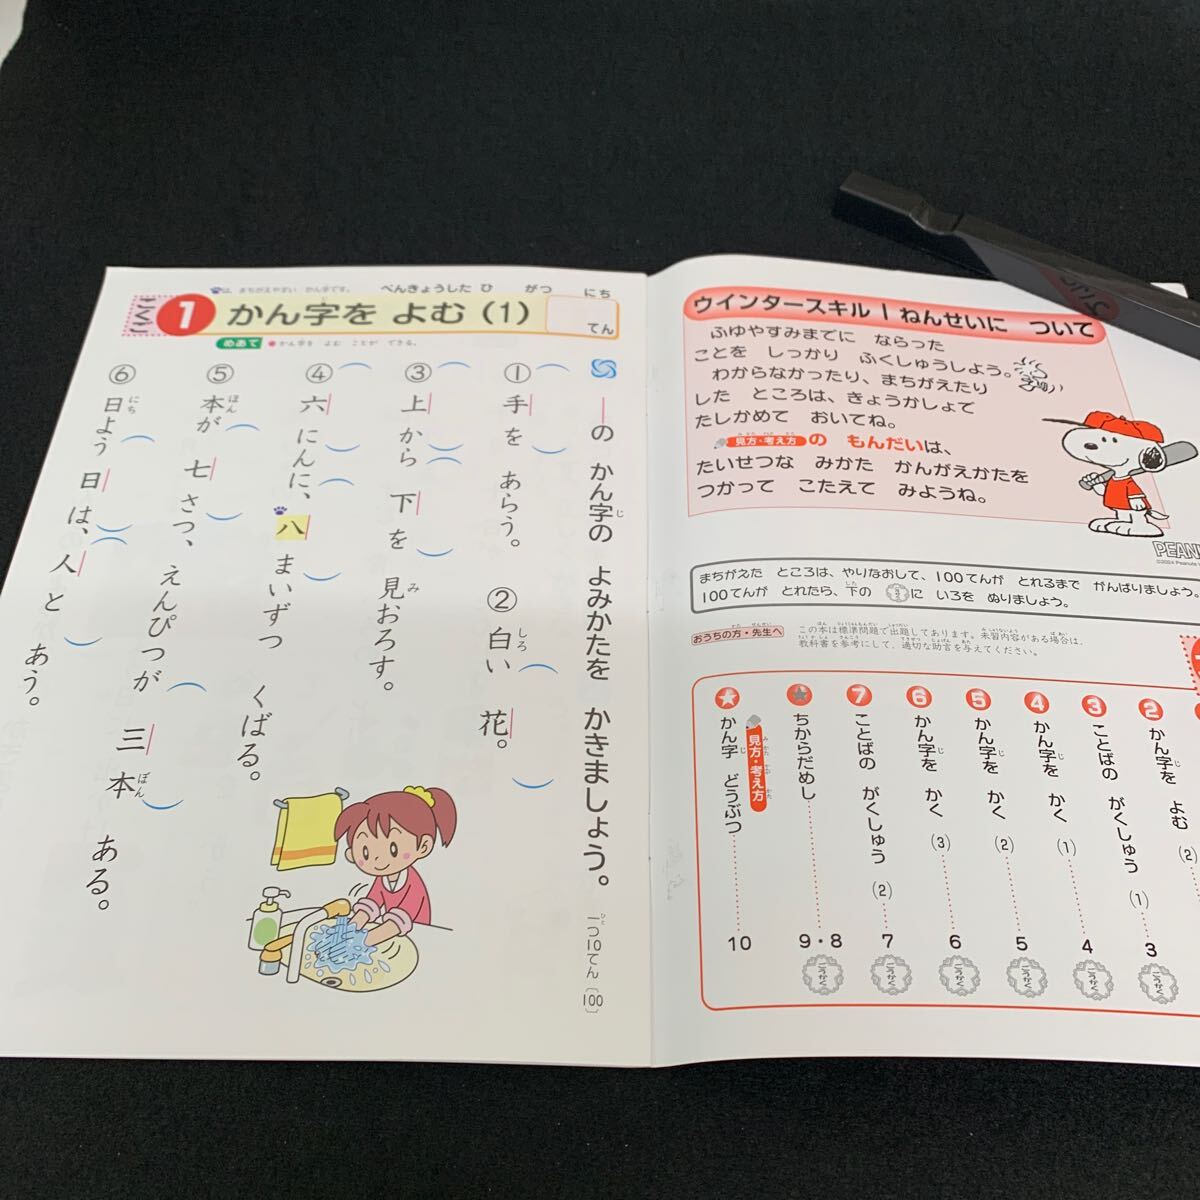 ウインタースキル1ねんせいに ついて
ふゆやすみまでに ならった
ことを しっかり ふくしゅうしよう。
わからなかったり、まちがえたり
した ところは、きょうかしょで
たしかめて おいてね。
見方・考え方の もんだいは、
たいせつな みかた かんがえかたを
つかって こたえて みようね。
PEAN
まちがえた ところは、やりなおして、100てんが とれるまで がんばりましょう。
100てんが とれたら、下の に いろを ぬりましょう。
おうちの方・先生へ
この本は標準問題で出題してあります。未習内容がある場合は、
教科書を参考にして、適切な助言を与えてください。
2 かん字を よむ (2)
3 ことばの がくしゅう (1) 3
4 かん字を かく (1) 4
5 かん字を かく (2) 5
6 かん字を かく (3) 6
7 ことばの がくしゅう (2) 7
★ ちからだめし 9・8
★ 見方・考え方 かん字 どうぶつ 10
ごうかく
ごうかく
ごうかく
ごうかく
ごうかく
ごうかく
は、まちがえやすい かん字です。
べんきょうした ひ がつ にち
1 かん字を よむ (1)
てん
めあて ●かん字を よむ ことが できる。
―の かん字の よみかたを かきましょう。
一つ10てん〔100〕
① 手を あらう。
② 白い 花。
③ 上から 下を 見おろす。
④ 六にんに、八まいずつ くばる。
⑤ 本が 七さつ、えんぴつが 三本 ある。
⑥ 日よう日は、人と あう。